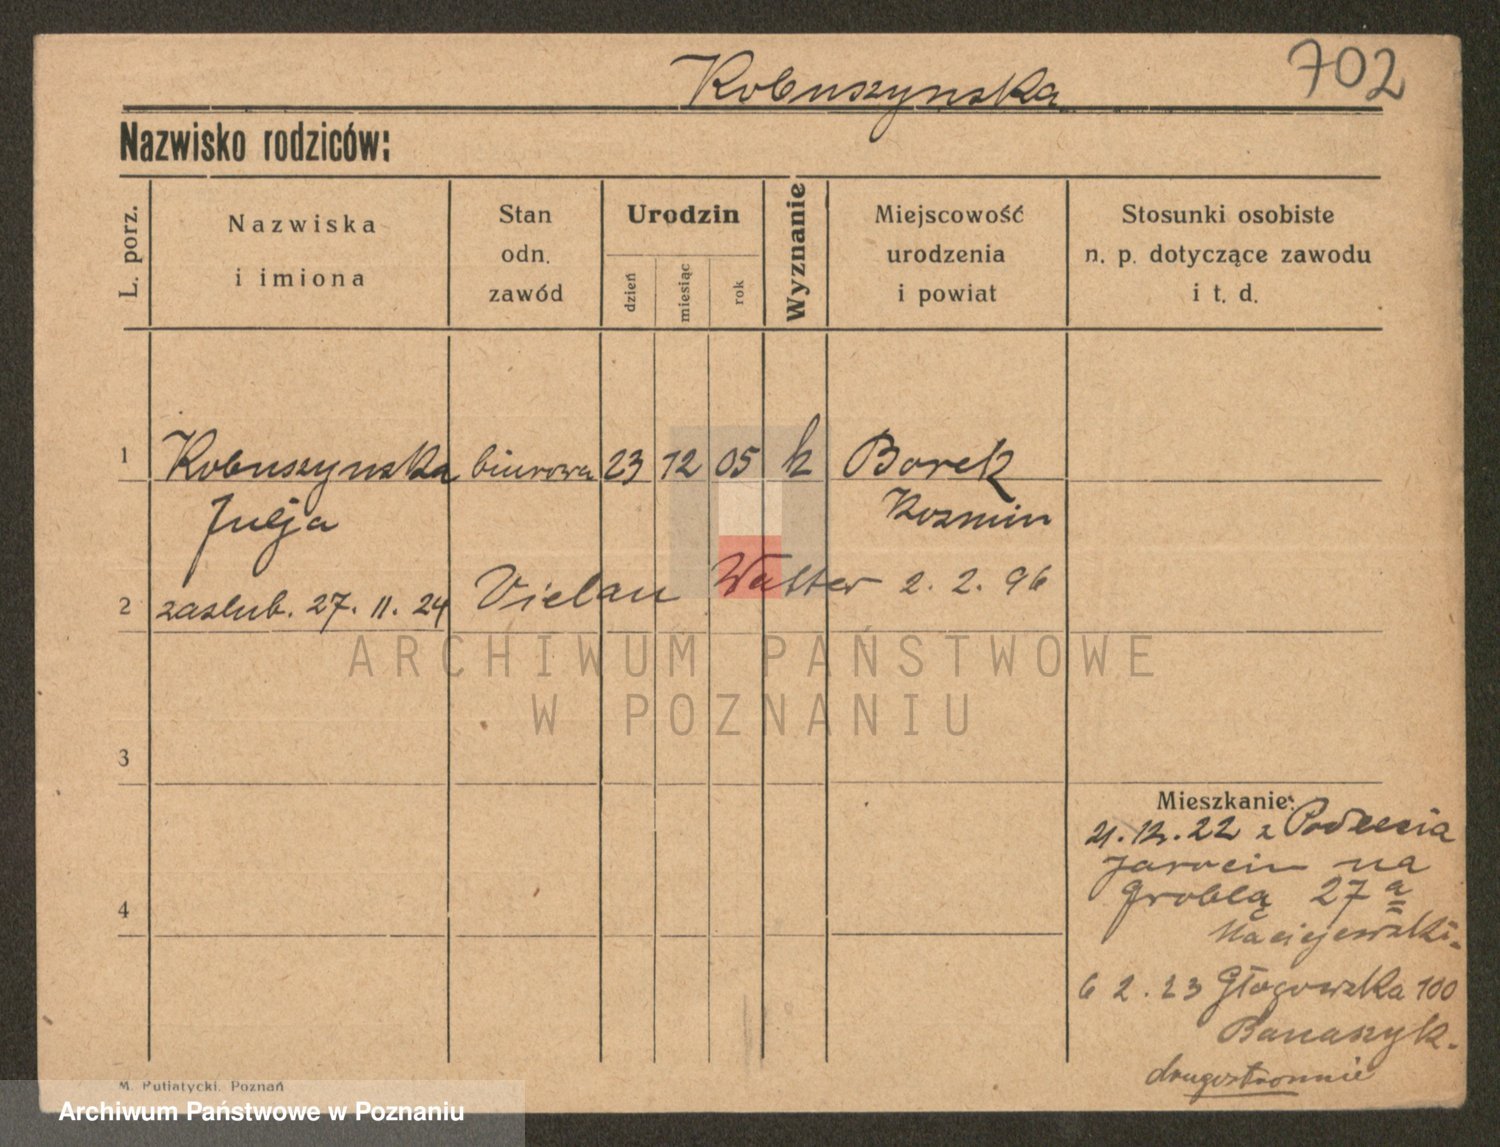 Kobuszynska
702
Nazwisko rodziców:
L. porz.
Nazwiska
i imiona
Stan
odn.
zawód
Urodzin
dzień
miesiąc
rok
Wyznanie
Miejscowość
urodzenia
i powiat
Stosunki osobiste
n. p. dotyczące zawodu
i t. d.
1 Kobuszynska biurowa 23 12 05 k Borek
Julja Kozmin
2 zaslub. 27. 11. 24 Vielau Walter 2. 2. 96
ARCHIWUM PAŃSTWOWE
W POZNANIU
3
Mieszkanie:
21. 12. 22 z
Jarocin na
4 Groblą 27 a
Maciejewski.
6 2. 23 Głogowska 100
Banaszyk.
drugostronnie
M. Putiatycki, Poznań
Archiwum Państwowe w Poznaniu